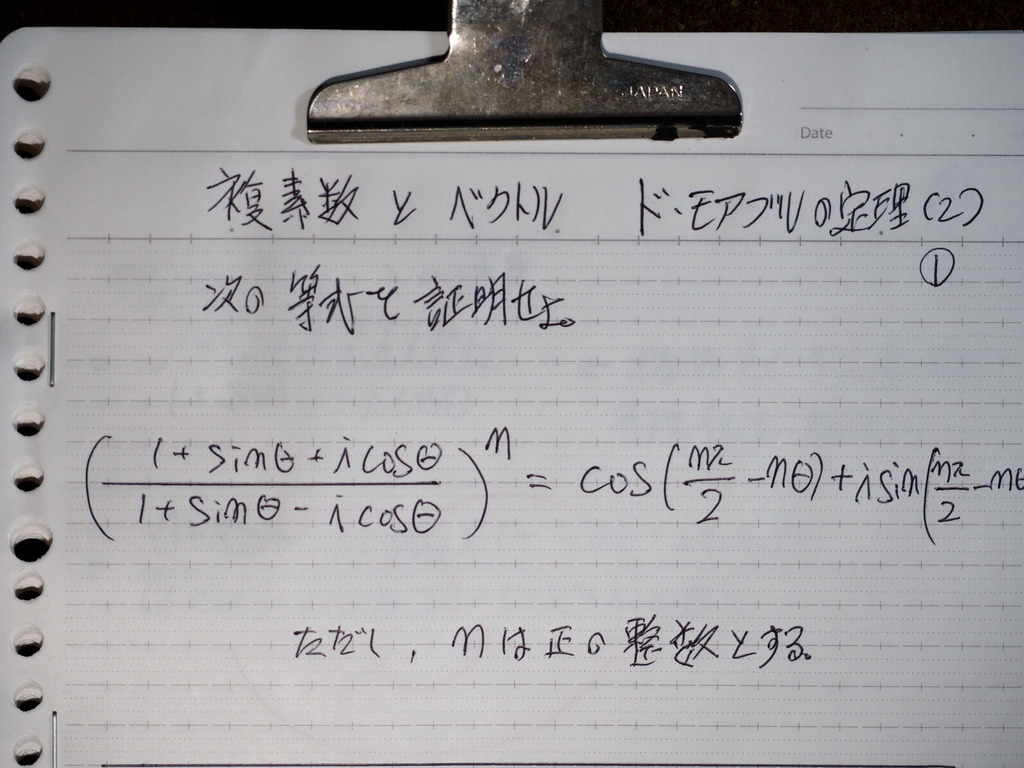 JAPAN
Date
複素数とベクトル ド・モアブルの定理(2)
①
次の等式を証明せよ。
(1+sinθ+icosθ / 1+sinθ-icosθ)^n = cos(nπ/2 -nθ)+isin(nπ/2 -nθ
ただし, nは正の整数とする。